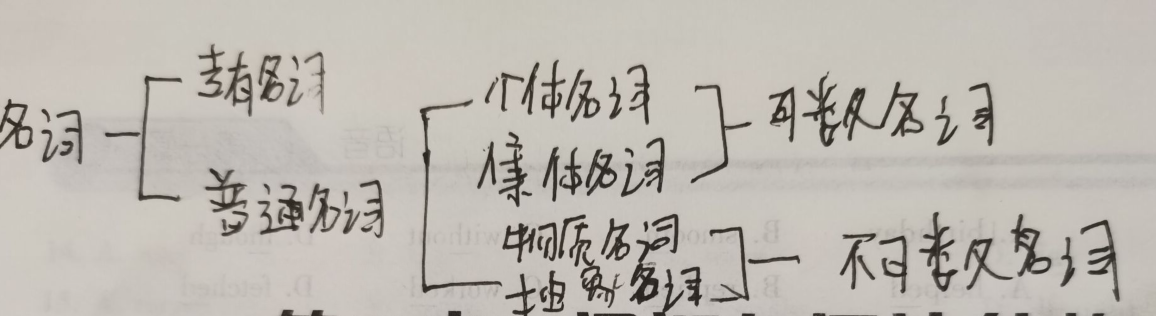 名词
专有名词
普通名词
个体名词
集体名词
可数名词
物质名词
抽象名词
不可数名词